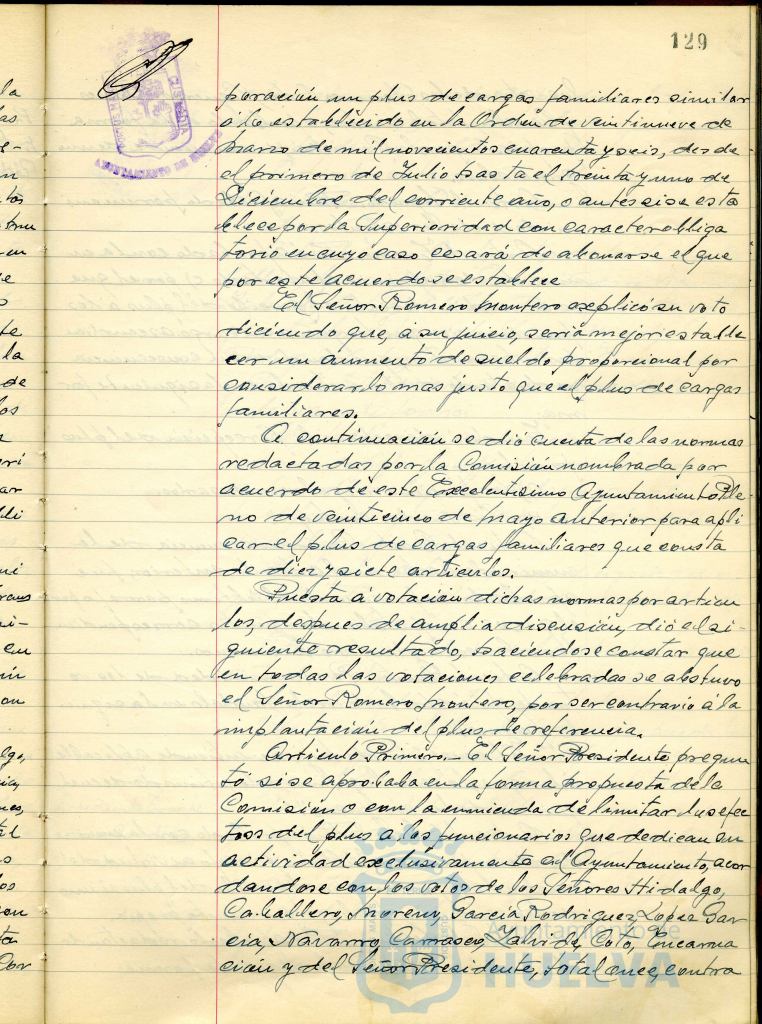 129
poración un plus de cargas familiares similar
a lo establecido en la Orden de veintinueve de
Marzo de mil novecientos cuarenta y seis, desde
el primero de Julio hasta el treinta y uno de
Diciembre del corriente año, o antes si se esta
blece por la Superioridad con caracter obliga
torio en cuyo caso cesará de abonarse el que
por este acuerdo se establece
El Señor Romero Montero explicó su voto
diciendo que, a su juicio, seria mejor estable
cer un aumento de sueldo proporcional por
considerarlo mas justo que el plus de cargas
familiares.
A continuación se dió cuenta de las normas
redactadas por la Comisión nombrada por
acuerdo de este Excelentisimo Ayuntamiento Ple
no de veinticinco de Mayo anterior para apli
car el plus de cargas familiares que consta
de diez y siete articulos.
Puesta á votación dichas normas por articu
los, despues de amplia discusión, dió el si-
guiente resultado, haciendose constar que
en todas las votaciones celebradas se abstuvo
el Señor Romero Montero, por ser contrario á la
implantación del plus de referencia.
Articulo Primero.- El Señor Presidente pregun
tó si se aprobaba en la forma propuesta de la
Comisión o con la enmienda de limitar los efec
tos del plus a los funcionarios que dedican su
actividad exclusivamente al Ayuntamiento, acor
dandose con los votos de los Señores Hidalgo,
Caballero, Moreno, Garcia Rodriguez, Lopez Gar
cia, Navarro Carrasco, Coto, Encarna
ción y del Señor Presidente, total once, contra
AYUNTAMIENTO DE HUELVA
Ayuntamiento de
HUELVA